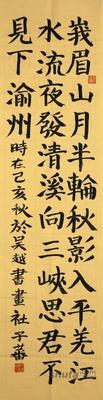 峩眉山月半輪秋影入平羌江
水流夜發清溪向三峽思君不
見下渝州 時在己亥秋於吳越書畫社子蕃